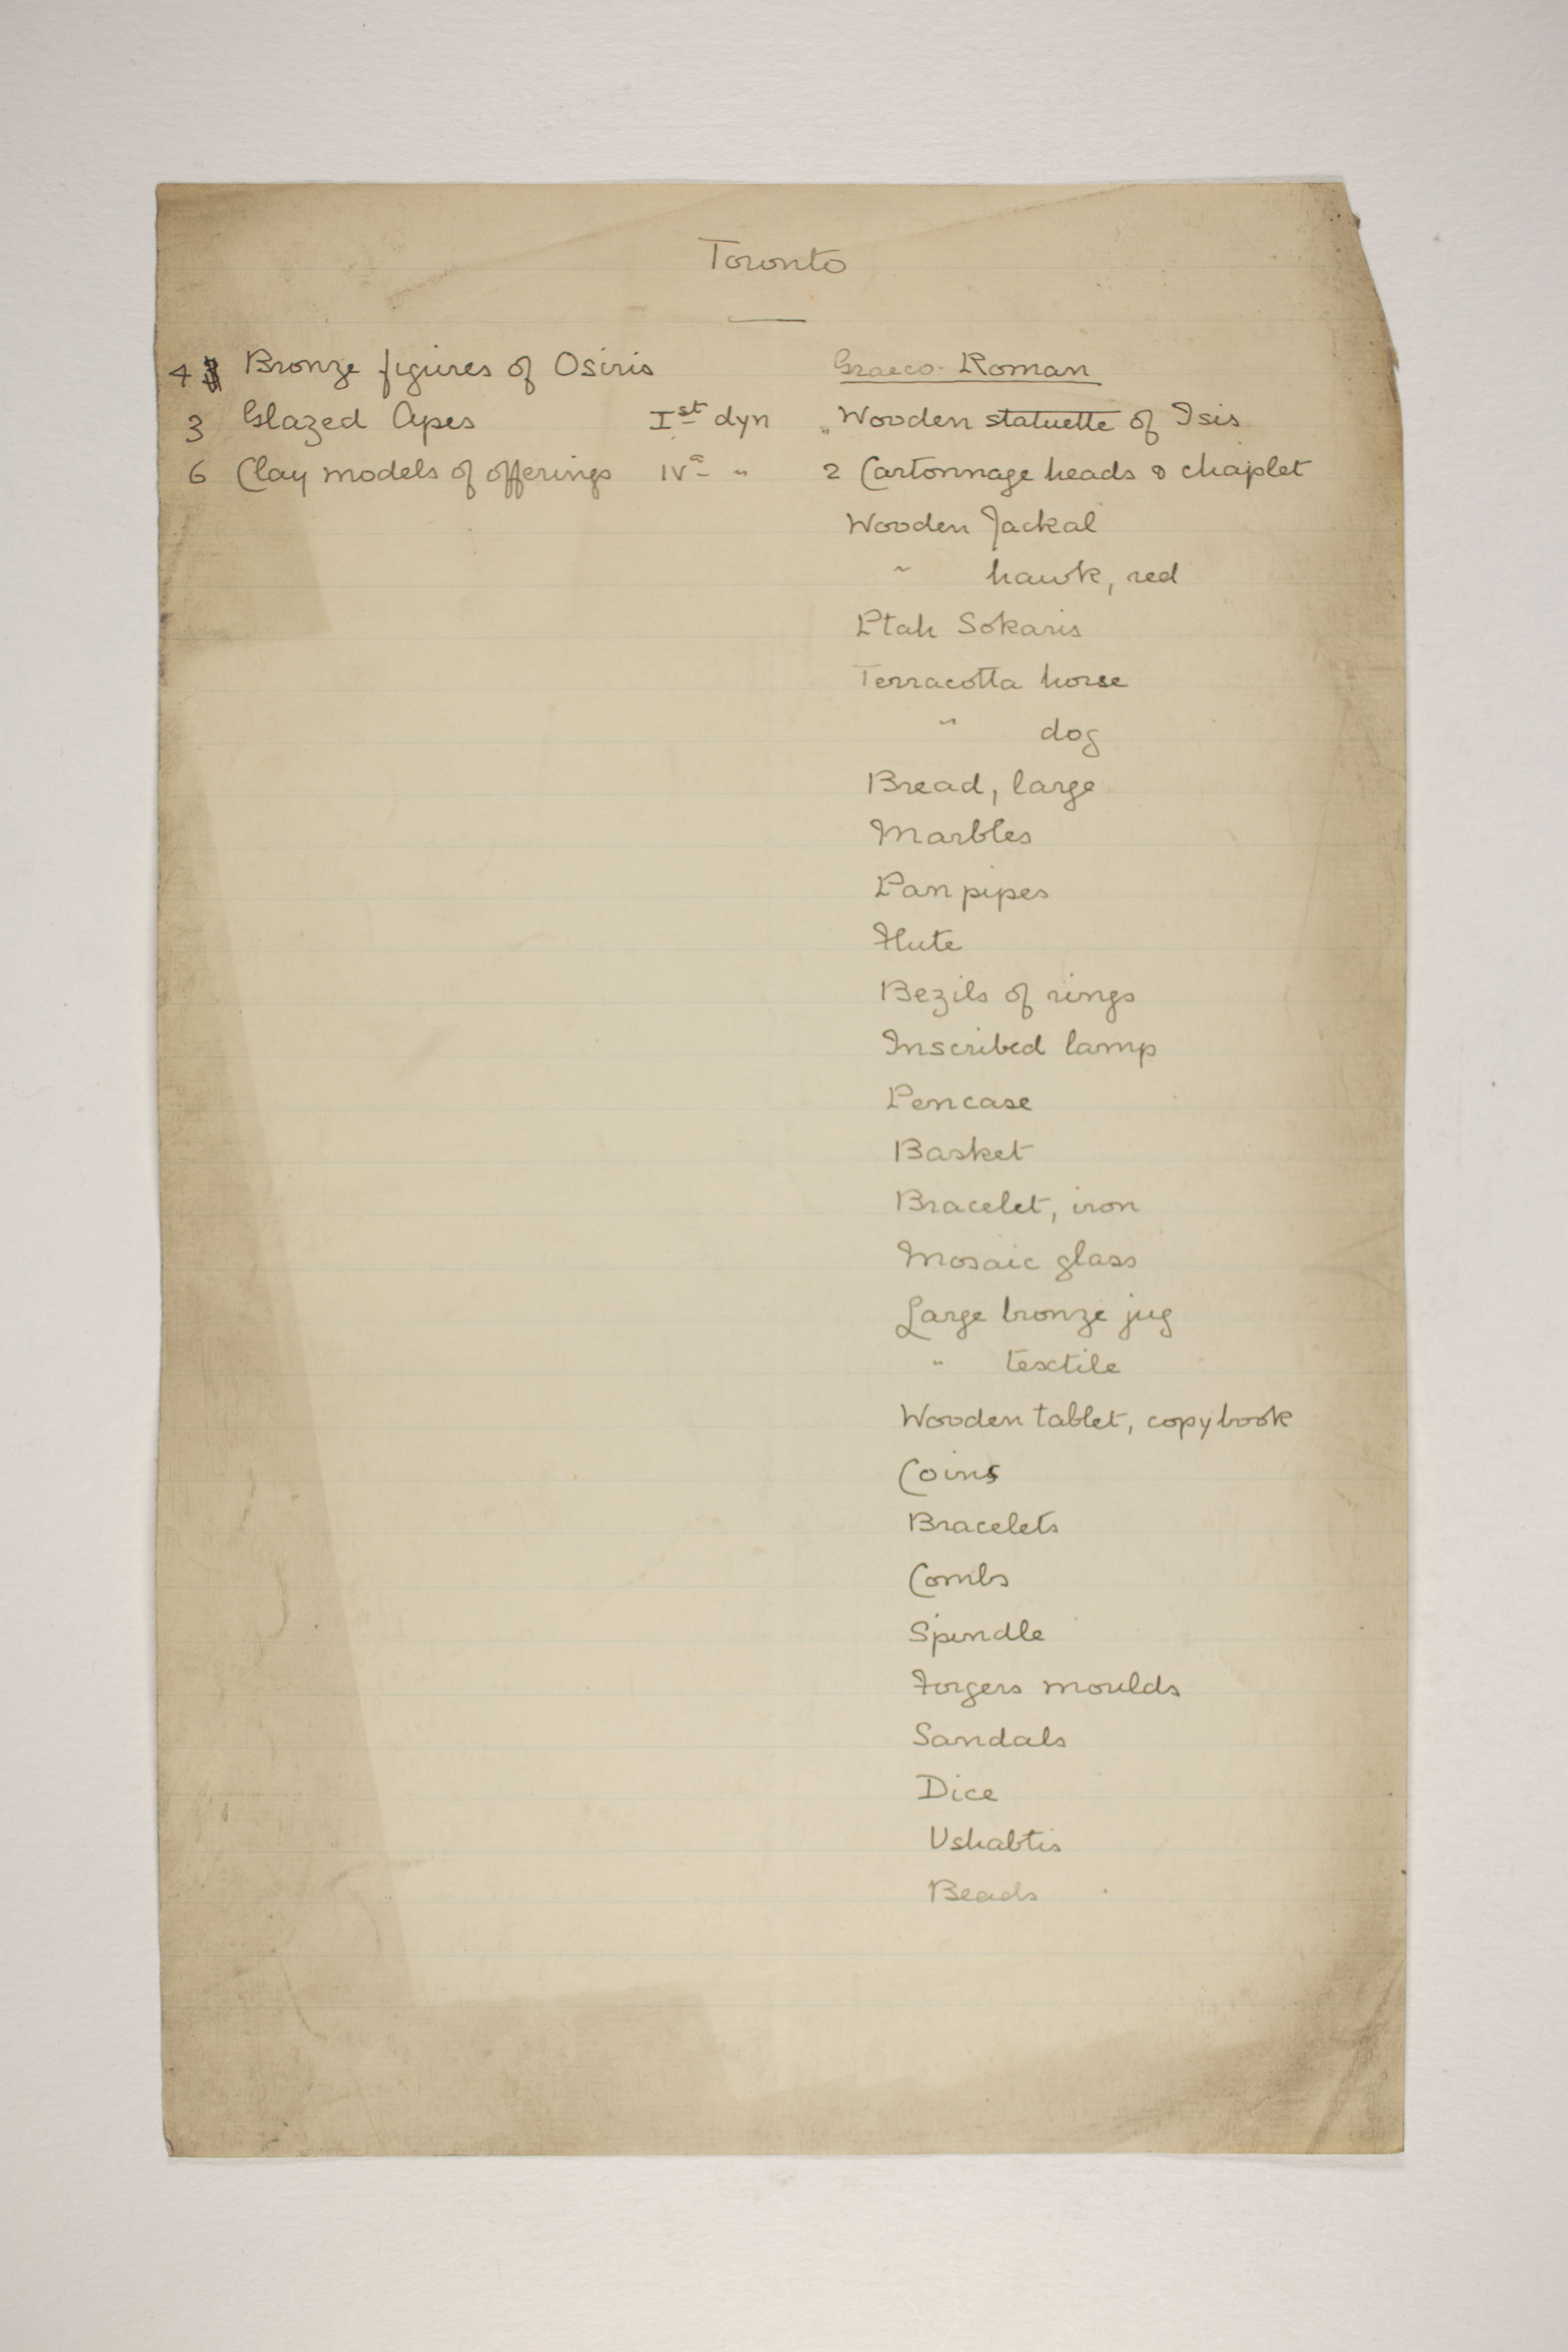 Toronto
4 Bronze figures of Osiris
3 Glazed Apes Ist dyn
6 Clay models of offerings IVth "
Graeco-Roman
Wooden statuette of Isis
2 Cartonnage heads & chaplet
Wooden Jackal
" hawk, red
Ptah Sokaris
Terracotta horse
" dog
Bread, large
Marbles
Pan pipes
Flute
Bezils of rings
Inscribed lamp
Pencase
Basket
Bracelet, iron
Mosaic glass
Large bronze jug
" textile
Wooden tablet, copybook
Coins
Bracelets
Combs
Spindle
Forgers moulds
Sandals
Dice
Ushabtis
Beads